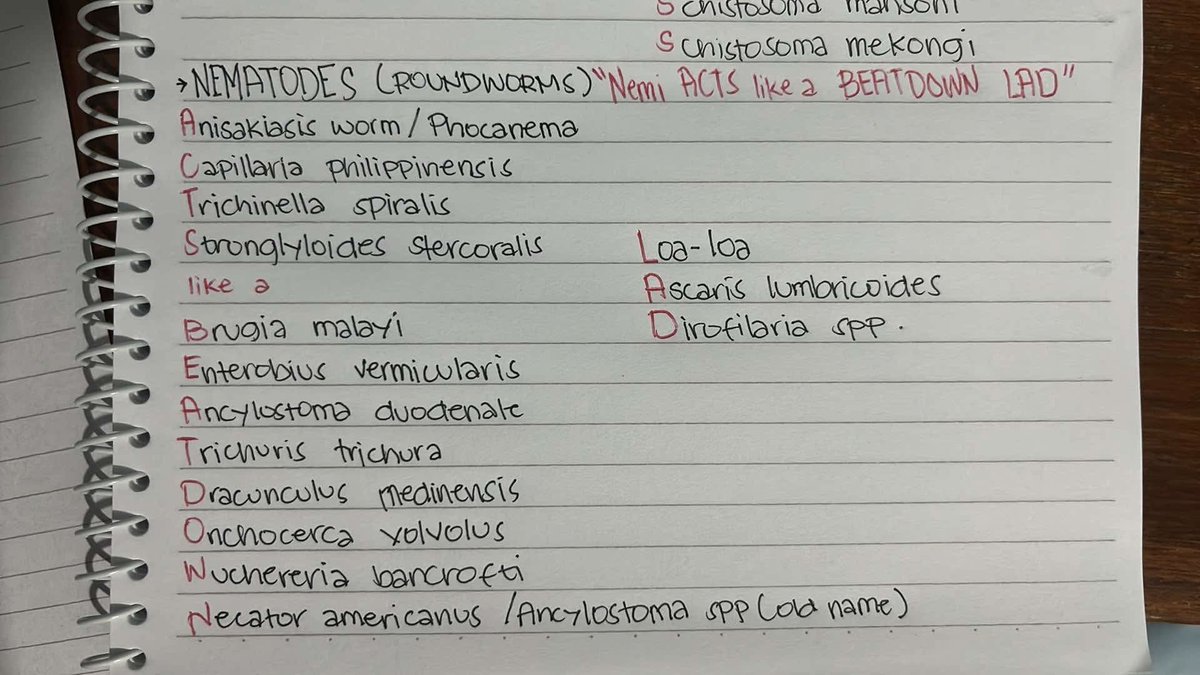 Schistosoma mansoni
Schistosoma mekongi
→NEMATODES (ROUNDWORMS) "Nemi ACTS like a BEATDOWN LAD"
Anisakiasis worm / Phocanema
Capillaria philippinensis
Trichinella spiralis
Stronglyloides stercoralis
like a
Brugia malayi
Enterobius vermicularis
Ancylostoma duodenale
Trichuris trichura
Dracunculus medinensis
Onchocerca volvolus
Wuchereria bancrofti
Necator americanus /Ancylostoma spp (old name)
Loa-loa
Ascaris lumbricoides
Dirofilaria spp.